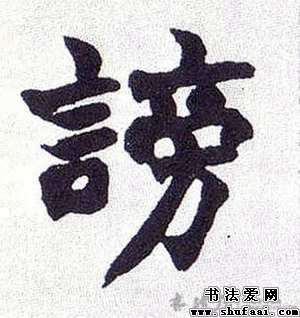 謗
书法爱网
www.shufaai.com